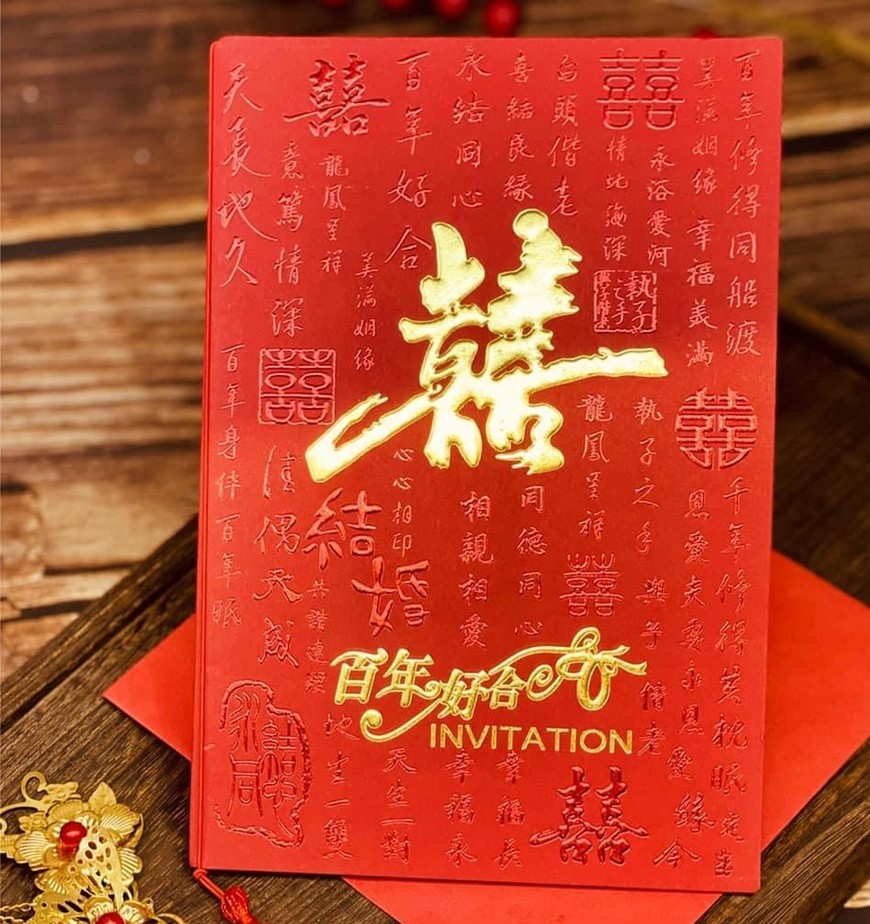 囍
百年好合
INVITATION
百年修得同船渡
千年修得共枕眠
美滿姻緣
幸福美滿
恩愛夫妻永恩愛
囍
永浴愛河
情比海深
執子之手
與子偕老
執子之手
白頭偕老
龍鳳呈祥
囍
喜結良緣
同德同心
幸福長
永結同心
相親相愛
幸福永
百年好合
心心相印
天生一對
囍
美滿姻緣
結婚
龍鳳呈祥
共諧連理
地生一雙
意篤情深
囍
佳偶天成
天長地久
百年身伴百年眠
永結同
囍
囍